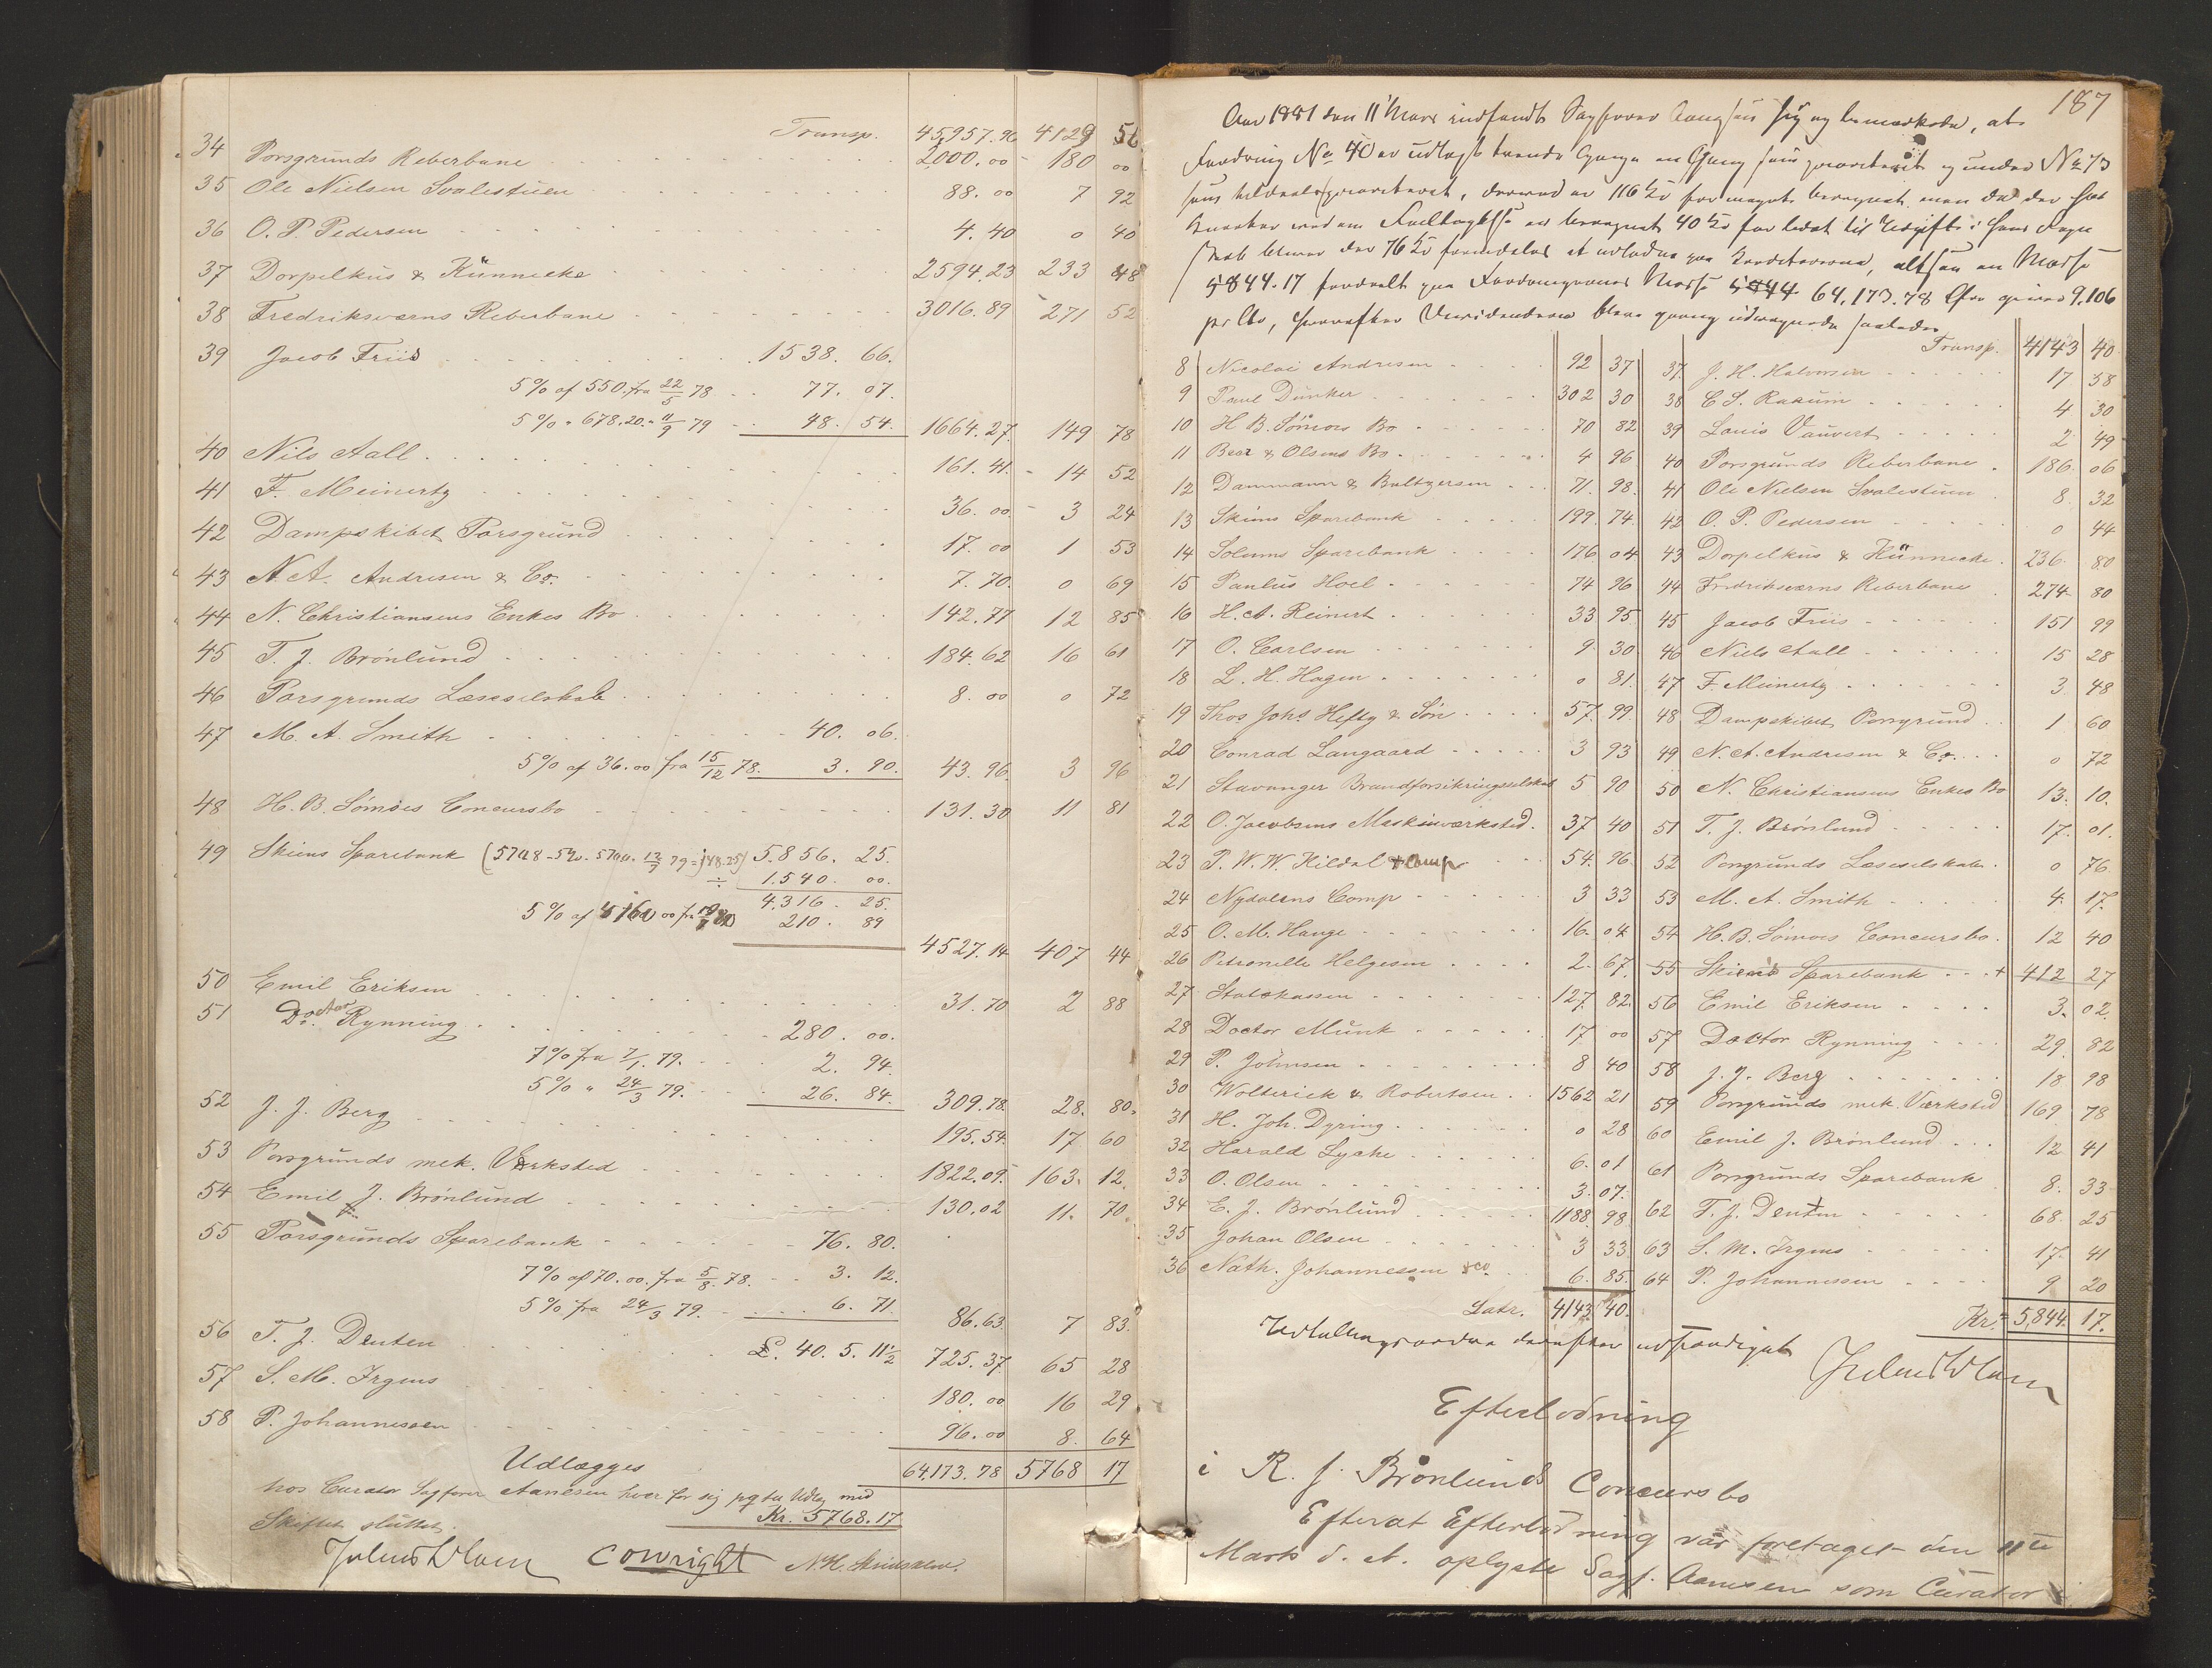 Transp. 45957.96 4129 56
34 Porsgrunds Reberbane 2000.00 180 00
35 Ole Nielsen Svalestuen 88.00 7 92
36 O. P. Pedersen 4.40 0 40
37 Dorpelküs & Künnecke 2594.23 233 48
38 Fredriksværns Reberbane 3016.89 271 52
39 Jacob Friis 1538. 66.
5% af 550. fra 22/5 78 77. 07.
5% " 678.20. " 11/9 79 48. 54. 1664.27. 149 78
40 Nils Aall 161.41. 14 52
41 F. Meinertz 36.00 3 24
42 Dampskibet Porsgrund 17.00 1 53
43 N. A. Andresen & Co. 7.70. 0 69
44 N. Christiansens Enkes Bo 142.77 12 85
45 T. J. Brönlund 184.62 16 61
46 Porsgrunds Læseselskab 8.00 0 72
47 M. A. Smith 40. 06.
5% af 36.00 fra 15/12 78. 3. 90. 43.96. 3 96
48 H. B. Sömoes Concursbo 131.30 11 81
49 Skiens Sparebank 5.856. 25.
÷ 1.540. 00.
4.316. 25.
5% af 210. 89
4527.14 407 44
50 Emil Eriksen 31.70 2 88
51 Doctor Rynning 280. 00.
7% fra 7/1. 79. 2. 94.
5% " 24/3 79. 26. 84. 309.78. 28. 80.
52 J. J. Berg 195.54. 17 60
53 Porsgrunds mek. Værksted 1822.09. 163. 12.
54 Emil J. Brönlund 130.02 11. 70.
55 Porsgrunds Sparebank 76. 80.
7% af 70.00. fra 5/8. 78. 3. 12.
5% fra 24/3 79. 6. 71. 86.63. 7 83.
56 T. J. Denten £. 40. 5. 11½ 725.37. 65 28
57 S. M. Irgens 180.00 16 29
58 P. Johannessen 96.00 8. 64
64173.78 5768 17
Udlægges
hos Curator Sagfører Aanesen hver for sig Udlæg med
Kr. 5768.17
Skiftet sluttet.
187
Aar 1881 den 11 Mars indfandt Sagfører Aanesen sig og bemærkede, at
Fordring No 40 er udlagt Gange en Gang som prioriteret og under No 13
som prioriteret, derved er 116 Kr for meget beregnet men da der
er beregnet 40 Kr for lidet til Udgifter i hans
bliver der 76 Kr at udlodne paa Kreditorerne, altsaa en Masse
5844.17 fordelt paa Fordringernes Masse 5844 64,173.78 Øre giver 9,106
pr Ct, hvorefter Dividenderne blive udregnede saaledes
Transp. 4143 40
8 Nicolai Andresen 92 37
9 Paul Dunker 302 30
10 H B. Sömoes Bo 70 82
11 Beer & Olsens Bo 4 96
12 Dammann & Baltzersen 71. 98.
13 Skiens Sparebank 199. 74.
14 Solums Sparebank 176 04
15 Paulus Hoel 74 96
16 H. A. Reinert 33 95
17 O. Carlsen 9. 30
18 L. H. Hagen 0 81.
19 Thos Johs Hefty & Sön 57. 99.
20 Conrad Langaard 3 93
21 Stavanger Brandforsikringsselskab 5 90
22 O. Jacobsens Maskinværksted. 37 40
23 P. W. W. Kildal & Comp 54. 96.
24 Nydalens Comp 3 33
25 O. M. Hauge 16. 04
26 Petronelle Helgesen 2. 67.
27 Statskassen 127. 82.
28 Doctor Munk 17 00
29 P. Johnsen 8 40
30 Wolterick & Robertsen 1562 21
31 H. Joh. Dyring 0 28
32 Harald Lyche 6. 01
33 O. Olsen 3. 07.
34 E. J. Brönlund 1188. 98.
35 Johan Olsen 3 33
36 Nath. Johannessen 6. 85.
Latr. 4143 40.
37. J. H. Halvorsen 17 58
38 C S. Rakum 4 30
39 Louis Vauvert 2 49
40 Porsgrunds Reberbane 186. 06
41 Ole Nielsen Svalestuen 8. 32
42 O. P. Pedersen 0 44
43 Dorpelküs & Künnecke 236. 80
44 Fredriksværns Reberbane 274 80
45 Jacob Friis 151 99
46 Niels Aall 15 28
47 F. Meinertz 3. 48
48 Dampskibet Porsgrund 1 60
49 N. A. Andresen & Co. 0 72
50 N. Christiansens Enkes Bo 13. 10.
51 T. J. Brönlund 17. 01.
52 Porsgrunds Læseselskab 0 76.
53 M. A. Smith 4. 17.
54 H. B. Sömoes Concursbo. 12 40
55 Skiens Sparebank + 412 27
56 Emil Eriksen 3. 02.
57 Doctor Rynning 29. 82
58 J. J. Berg 18 98
59 Porsgrunds mek. Værksted 169. 78
60 Emil J. Brönlund 12 41
61 Porsgrunds Sparebank 8. 33
62 T. J. Denten 68. 25
63 S. M. Irgens 17. 41
64 P. Johannessen 9 20
Kr. 5,844. 17.
Udtællingsordre derefter udfærdiget
Efterlodning
i R. J. Brönlunds Concursbo
Efterat Efterlodning var foretaget den 11te
Marts d. A. oplyste Sagf. Aanesen som Curator